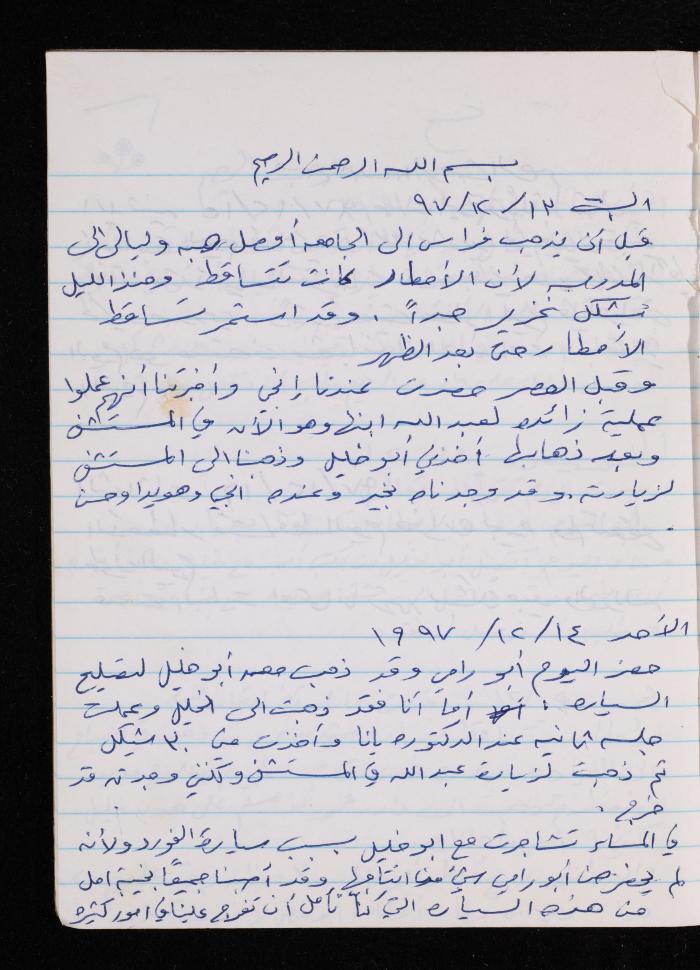 بسم الله الرحمن الرحيم
السبت ١٣/١٢/٩٧
قبل أن يذهب فراس الى الجامعه أوصل هبه وليالي الى
المدرسه لأن الأمطار كانت تتساقط ومنذ الليل
بشكل غزير جداً. وقد استمر تساقط
الأمطار حتى بعد الظهر
وقبل العصر حضرت عندنا اني وأخبرتنا أنهم عملوا
عملية زائده لعبد الله ابنها وهو الآن في المستشفى
وبعد ذهابها أخذني أبو خليل وذهبنا الى المستشفى
لزيارته. وقد وجدناه بخير وعنده ابي وهويدا وحسن
.
الأحد ١٤/١٢/١٩٩٧
حضر اليوم أبو رامي وقد ذهب معه أبو خليل لتصليح
السياره. أما أنا فقد ذهبت الى الخليل وعملت
جلسه ثانيه عند الدكتوره يانا وأخذت مني ٣٠ شيكل
ثم ذهبت لزيارة عبد الله في المستشفى ولكني وجدته قد
خرج.
في المساء تشاجرت مع ابو خليل بسبب سيارة الفورد ولأنه
لم يحضر من أبو رامي شيء من انتاجها وقد أصبنا جميعاً بخيبة امل
من هذه السياره التي كنا نأمل أن تفرج علينا في امور كثيره